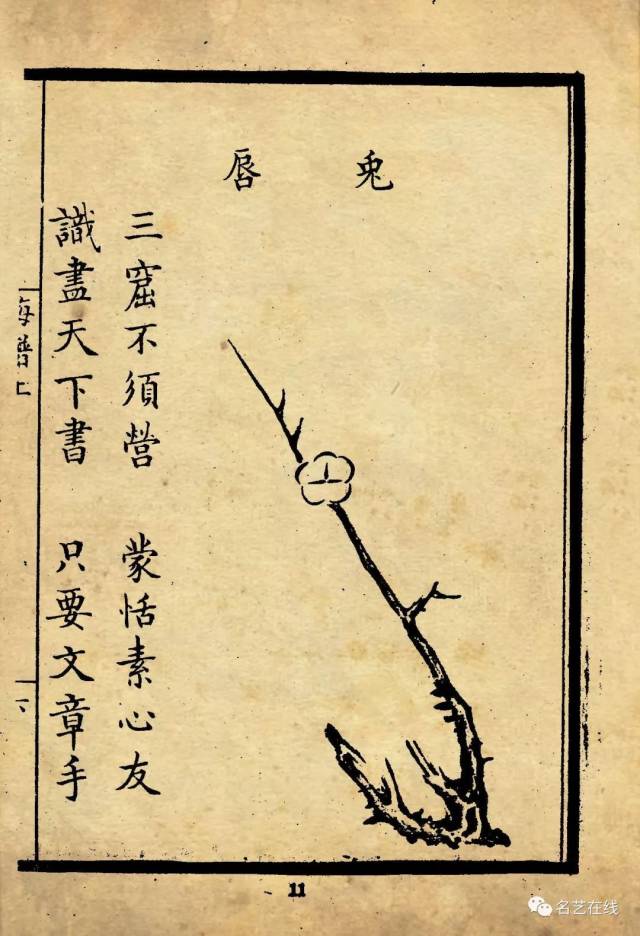 兎脣
三窟不須營 蒙恬素心友
識盡天下書 只要文章手
梅譜上
11
名艺在线